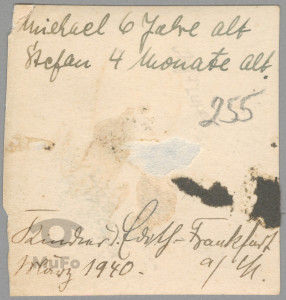 Michael 6 Jahre alt
Stefan 4 Monate alt.
255
Kinder d. Edith - Frankfurt
März 1940. a/M.
MuFo